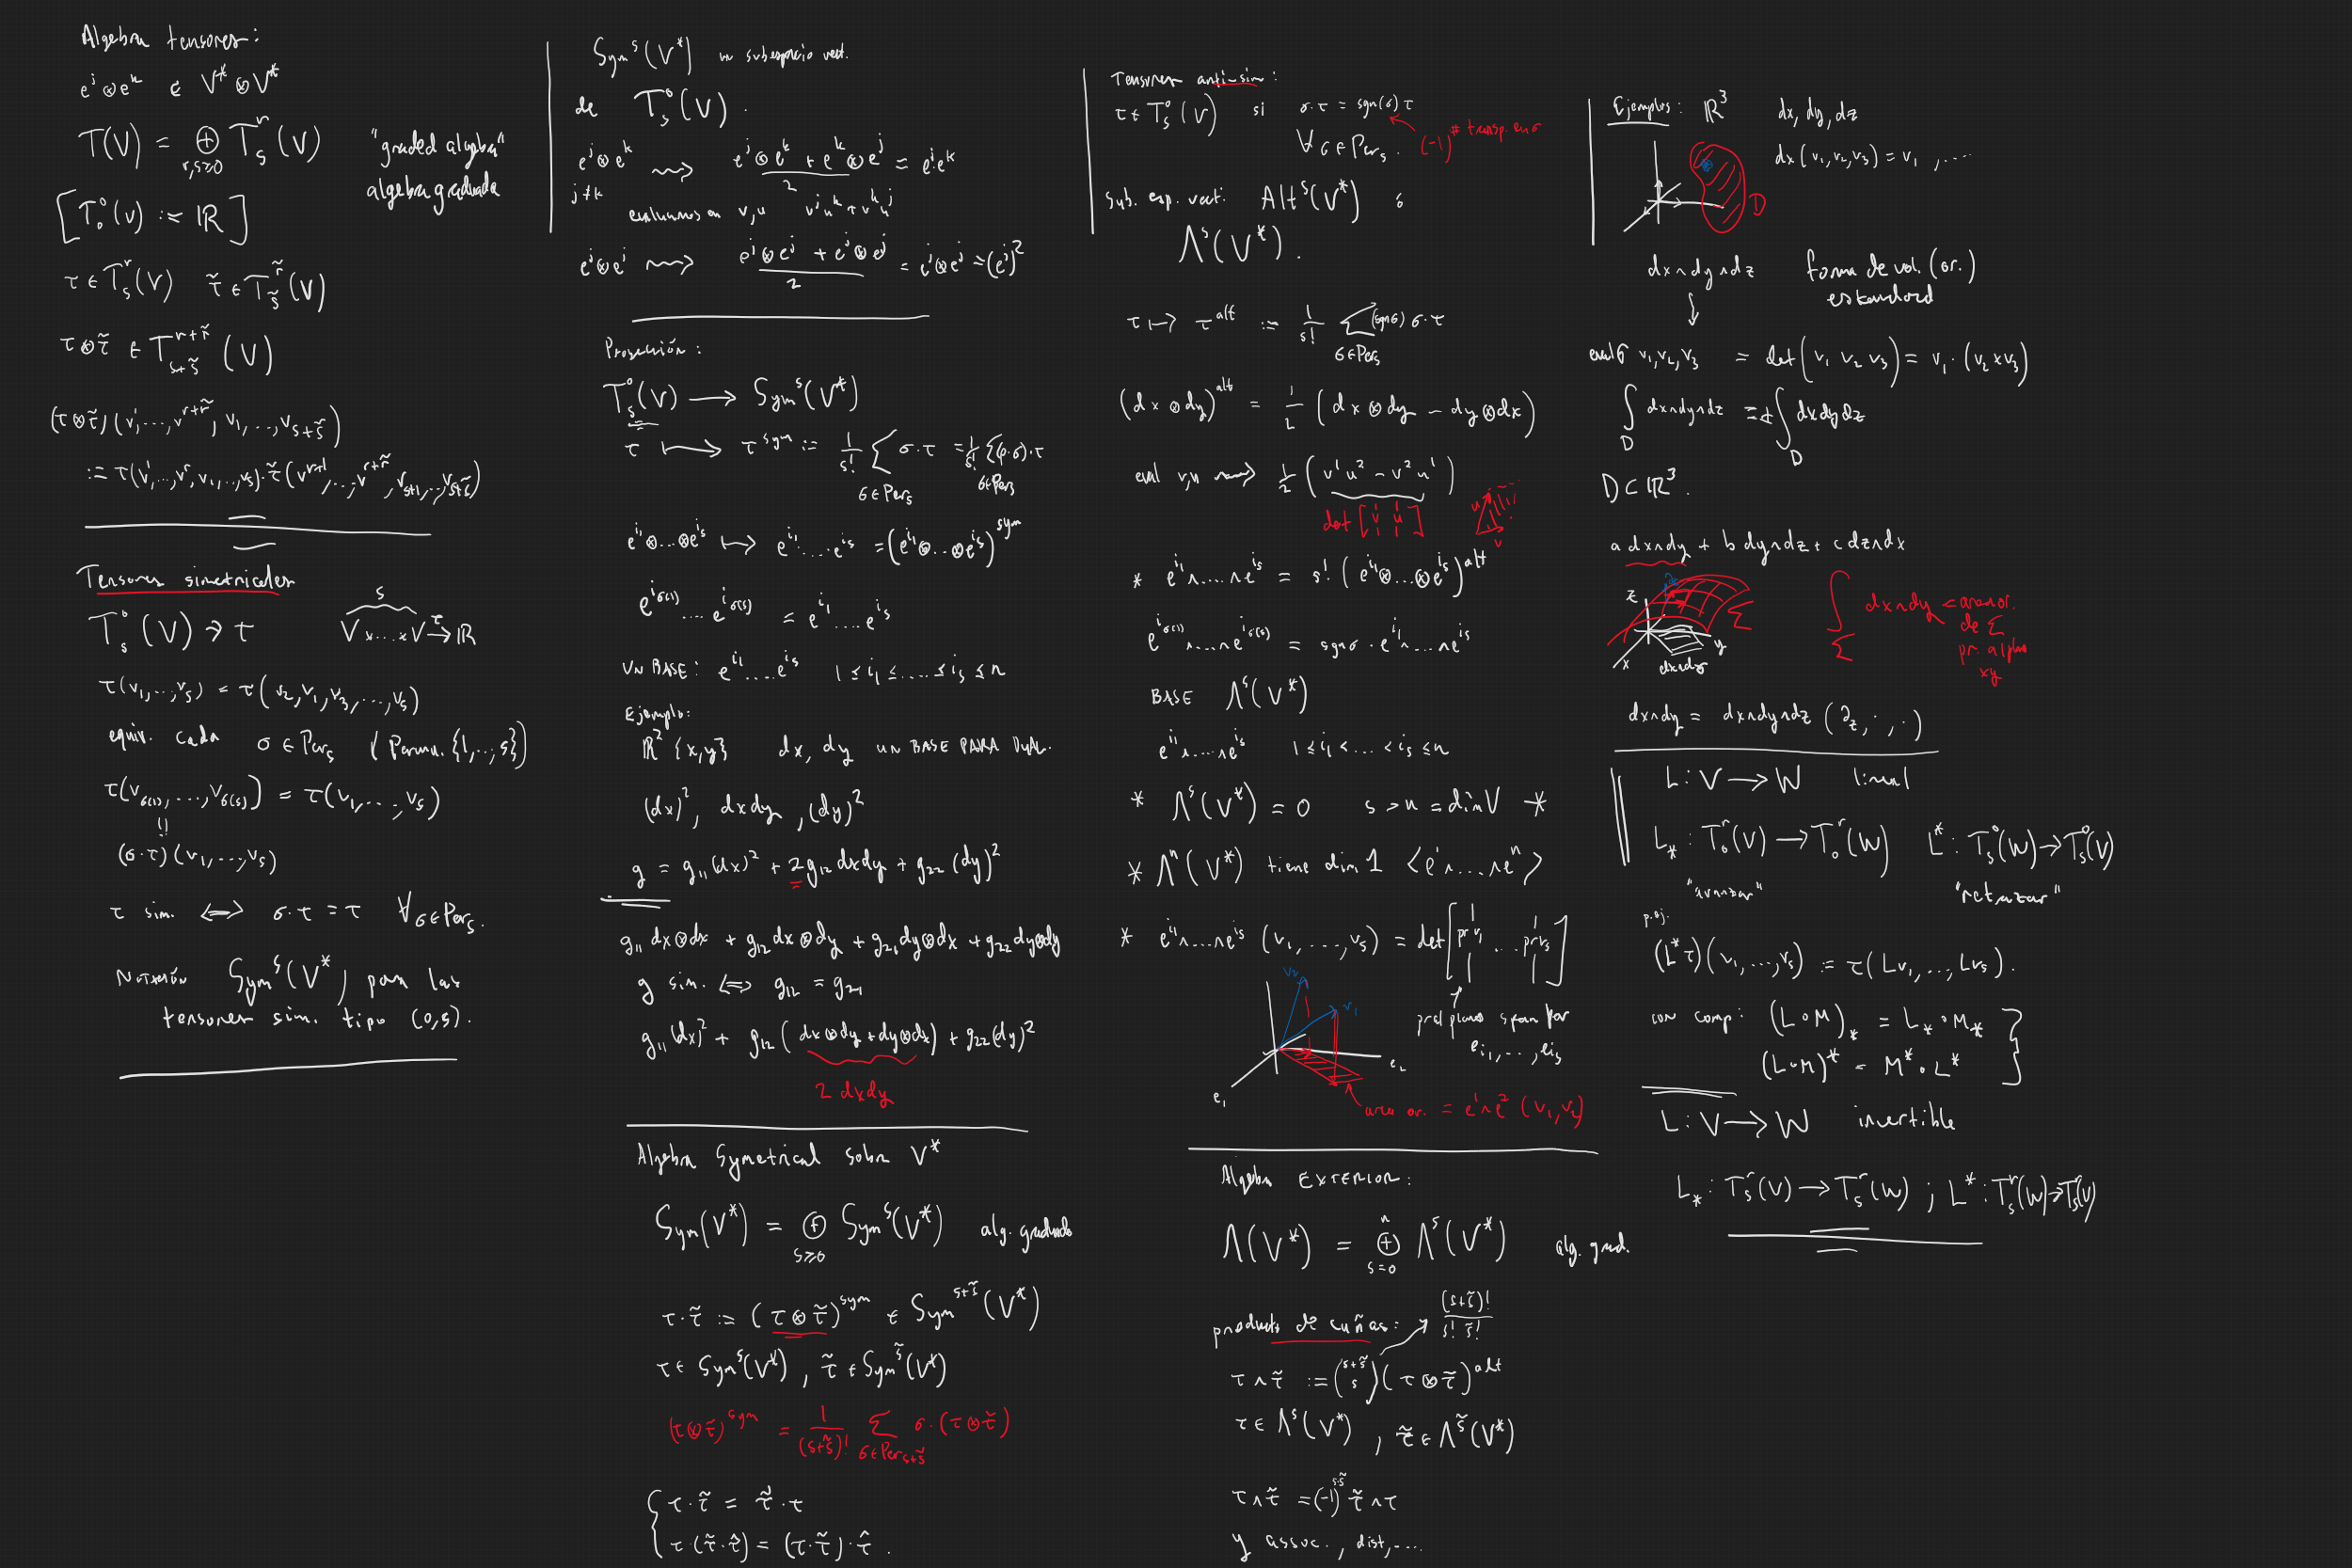 Algebra tensores:
e^j ⊗ e^k ∈ V* ⊗ V*
T(V) = ⊕_{r,s≥0} T^r_s(V)
"graded algebra"
algebra graduada
[T^0_0(V) := ℝ]
τ ∈ T^r_s(V) τ̃ ∈ T^{r̃}_{s̃}(V)
τ ⊗ τ̃ ∈ T^{r+r̃}_{s+s̃}(V)
(τ ⊗ τ̃)(v^1, ..., v^{r+r̃}, v_1, ..., v_{s+s̃})
:= τ(v^1, ..., v^r, v_1, ..., v_s) · τ̃(v^{r+1}, ..., v^{r+r̃}, v_{s+1}, ..., v_{s+s̃})
Tensores simetricales
s
T^0_s(V) ∋ τ V x...x V →^τ ℝ
τ(v_1, ..., v_s) = τ(v_2, v_1, v_3, ..., v_s)
equiv. cada σ ∈ Per_s (Permu. {1, .., s})
τ(v_{σ(1)}, ..., v_{σ(s)}) = τ(v_1, ..., v_s)
!!
(σ·τ)(v_1, ..., v_s)
τ sim. ⟺ σ·τ = τ ∀ σ ∈ Per_s.
Notación Sym^s(V*) para las
tensores sim. tipo (0,s).
Sym^s(V*) un subespacio vect.
de T^0_s(V).
e^j ⊗ e^k ⇝ (e^j ⊗ e^k + e^k ⊗ e^j)/2 = e^j e^k
j ≠ k
evaluamos en v, u v^j u^k + v^k u^j
e^j ⊗ e^j ⇝ (e^j ⊗ e^j + e^j ⊗ e^j)/2 = e^j ⊗ e^j = (e^j)^2
Proyección:
T^0_s(V) ⟶ Sym^s(V*)
τ ⟼ τ^{sym} := 1/s! Σ_{σ∈Per_s} σ·τ = 1/s! Σ_{σ∈Per_s} (ρ·σ)·τ
e^{i_1} ⊗...⊗ e^{i_s} ⟼ e^{i_1}.....e^{i_s} = (e^{i_1} ⊗...⊗ e^{i_s})^{sym}
e^{i_{σ(1)}}....e^{i_{σ(s)}} = e^{i_1}....e^{i_s}
UN BASE: e^{i_1}.....e^{i_s} 1 ≤ i_1 ≤ .... ≤ i_s ≤ n
Ejemplo:
ℝ^2 {x,y} dx, dy UN BASE PARA DUAL.
(dx)^2, dxdy, (dy)^2
g = g_11(dx)^2 + 2g_12 dxdy + g_22(dy)^2
g_11 dx⊗dx + g_12 dx⊗dy + g_21 dy⊗dx + g_22 dy⊗dy
g sim. ⟺ g_12 = g_21
g_11(dx)^2 + g_12(dx⊗dy + dy⊗dx) + g_22(dy)^2
2 dxdy
Algebra Symetrical sobre V*
Sym(V*) = ⊕_{s≥0} Sym^s(V*) alg. graduada
τ·τ̃ := (τ ⊗ τ̃)^{sym} ∈ Sym^{s+s̃}(V*)
τ ∈ Sym^s(V*), τ̃ ∈ Sym^{s̃}(V*)
(τ ⊗ τ̃)^{sym} = 1/(s+s̃)! Σ_{σ∈Per_{s+s̃}} σ·(τ ⊗ τ̃)
{ τ·τ̃ = τ̃·τ
τ·(τ̃·τ̂) = (τ·τ̃)·τ̂.
Tensores anti-sim:
τ ∈ T^0_s(V) si σ·τ = sgn(σ) τ
∀ σ ∈ Per_s. (-1)^{# transp. en σ}
Sub. esp. vect. Alt^s(V*) ó
Λ^s(V*).
τ ⟼ τ^{alt} := 1/s! Σ_{σ∈Per_s} (sgn σ) σ·τ
(dx ⊗ dy)^{alt} = 1/2 (dx ⊗ dy − dy ⊗ dx)
eval v,u ⇝ 1/2 (v^1 u^2 − v^2 u^1)
det [v u]
u
v
* e^{i_1} ∧.....∧ e^{i_s} = s! (e^{i_1} ⊗...⊗ e^{i_s})^{alt}
e^{i_{σ(1)}} ∧....∧ e^{i_{σ(s)}} = sgn σ · e^{i_1} ∧....∧ e^{i_s}
BASE Λ^s(V*)
e^{i_1} ∧....∧ e^{i_s} 1 ≤ i_1 < ... < i_s ≤ n
* Λ^s(V*) = 0 s > n = dim V *
* Λ^n(V*) tiene dim 1 <e^1 ∧....∧ e^n>
* e^{i_1} ∧....∧ e^{i_s} (v_1, ..., v_s) = det [pr v_1 ... pr v_s]
pr al plano span por
e_{i_1}, ..., e_{i_s}
v_2
v_1
e_2
e_1
area or. = e^1 ∧ e^2 (v_1, v_2)
Algebra EXTERIOR:
Λ(V*) = ⊕_{s=0}^n Λ^s(V*) alg. grad.
producto de cuñas: (s+s̃)!/(s! s̃!)
τ ∧ τ̃ := (s+s̃ s)(τ ⊗ τ̃)^{alt}
τ ∈ Λ^s(V*), τ̃ ∈ Λ^{s̃}(V*)
τ ∧ τ̃ = (-1)^{s·s̃} τ̃ ∧ τ
y assoc., dist, ....
Ejemplos: ℝ^3 dx, dy, dz
dx(v_1, v_2, v_3) = v_1, ....
D
dx∧dy∧dz forma de vol. (or.)
estandard
eval v_1, v_2, v_3 = det(v_1 v_2 v_3) = v_1 · (v_2 x v_3)
∫_D dx∧dy∧dz = ± ∫_D dxdydz
D ⊂ ℝ^3.
a dx∧dy + b dy∧dz + c dz∧dx
z
∂_z
Σ
y
x
dx∧dy
∫_Σ dx∧dy = area or.
de Σ
pr. al plano
xy
dx∧dy = dx∧dy∧dz (∂_z, ·, ·)
L: V ⟶ W lineal
L_*: T^r_0(V) ⟶ T^r_0(W) L*: T^0_s(W) → T^0_s(V)
"avanzar" "retrazar"
p.ej.
(L*τ)(v_1, ..., v_s) := τ(Lv_1, ..., Lv_s).
con comp: (L∘M)_* = L_*∘M_*
(L∘M)* = M*∘L*
L: V ⟶ W invertible
L_*: T^r_s(V) → T^r_s(W); L*: T^r_s(W) → T^r_s(V)